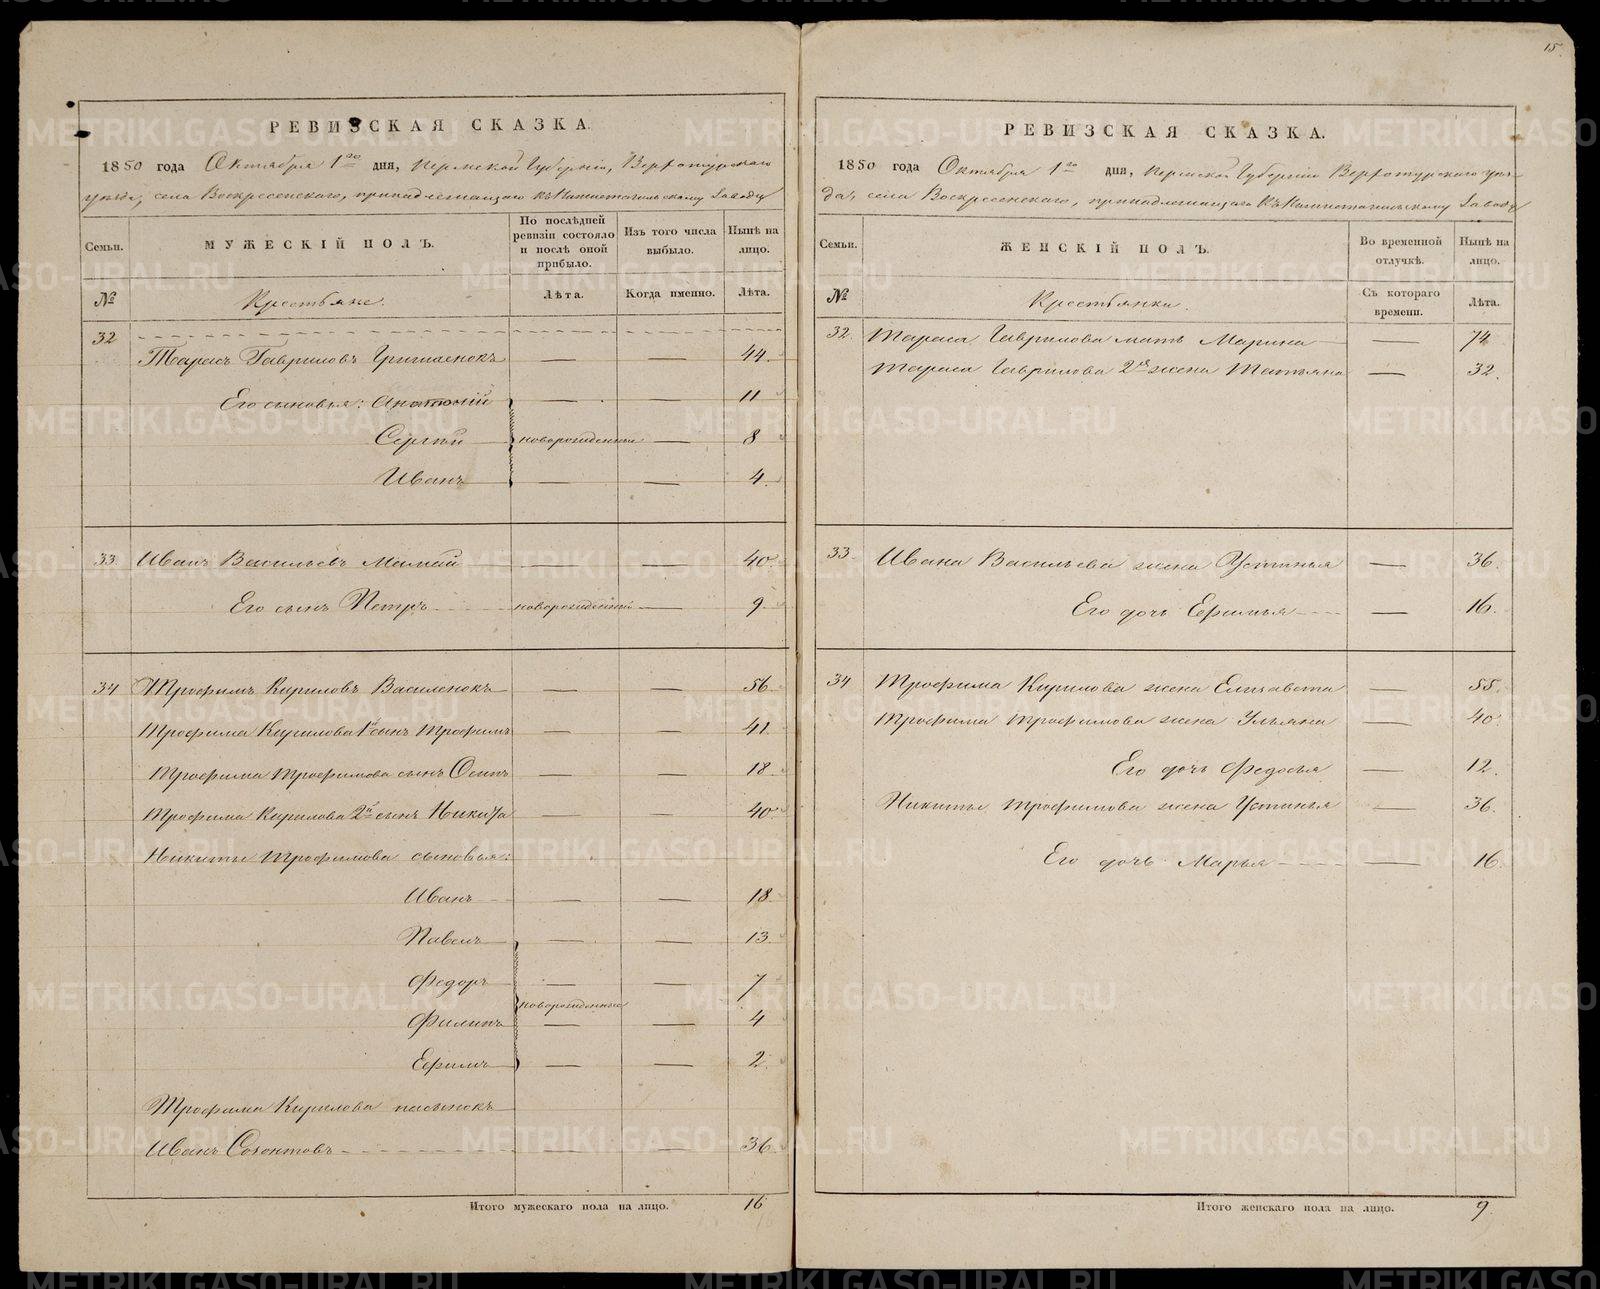 15
РЕВИЗСКАЯ СКАЗКА.
1850 года Октября 1го дня, Пермской Губерніи, Верхотурскаго
уѣзда, села Воскресенскаго, принадлежащаго къ Нижнетагильскому Заводу
Семьи.
МУЖЕСКІЙ ПОЛЪ.
По послѣдней ревизіи состояло и послѣ оной прибыло.
Изъ того числа выбыло.
Нынѣ на лицо.
№
Крестьяне.
Лѣта.
Когда именно.
Лѣта.
32
Тарасъ Гавриловъ Гришаенокъ — — 44.
Его сыновья: Анатолій — — 11
Сергѣй новорожденные — 8
Иванъ — — 4.
33 Иванъ Васильевъ Мамай — — 40.
Его сынъ Петръ новорожденный — 9
34 Трофимъ Кириловъ Василенокъ — — 56.
Трофима Кирилова 1й сынъ Трофимъ — — 41.
Трофима Трофимова сынъ Осипъ — — 18.
Трофима Кирилова 2й сынъ Никита — — 40.
Никиты Трофимова сыновья:
Иванъ — — 18.
Павелъ — — 13.
Федоръ — — 7
новорожденные
Филипъ — — 4
Ефимъ — — 2.
Трофима Кирилова пасынокъ
Иванъ Созонтовъ — 36.
Итого мужескаго пола на лицо. 16
РЕВИЗСКАЯ СКАЗКА.
1850 года Октября 1го дня, Пермской Губерніи Верхотурскаго уѣз-
да, села Воскресенскаго, принадлежащаго къ Нижнетагильскому Заводу
Семьи.
ЖЕНСКІЙ ПОЛЪ.
Во временной отлучкѣ.
Нынѣ на лицо.
№
Крестьянки.
Съ котораго времени.
Лѣта.
32. Тараса Гаврилова мать Марина — 74.
Тараса Гаврилова 2я жена Татьяна — 32.
33. Ивана Васильева жена Устинья — 36.
Его дочь Ефимья — 16.
34 Трофима Кирилова жена Елисавета — 55.
Трофима Трофимова жена Ульяна — 40.
Его дочь Федосья — 12.
Никиты Трофимова жена Устинья — 36.
Его дочь Марья — 16.
Итого женскаго пола на лицо. 9.
METRIKI.GASO-URAL.RU